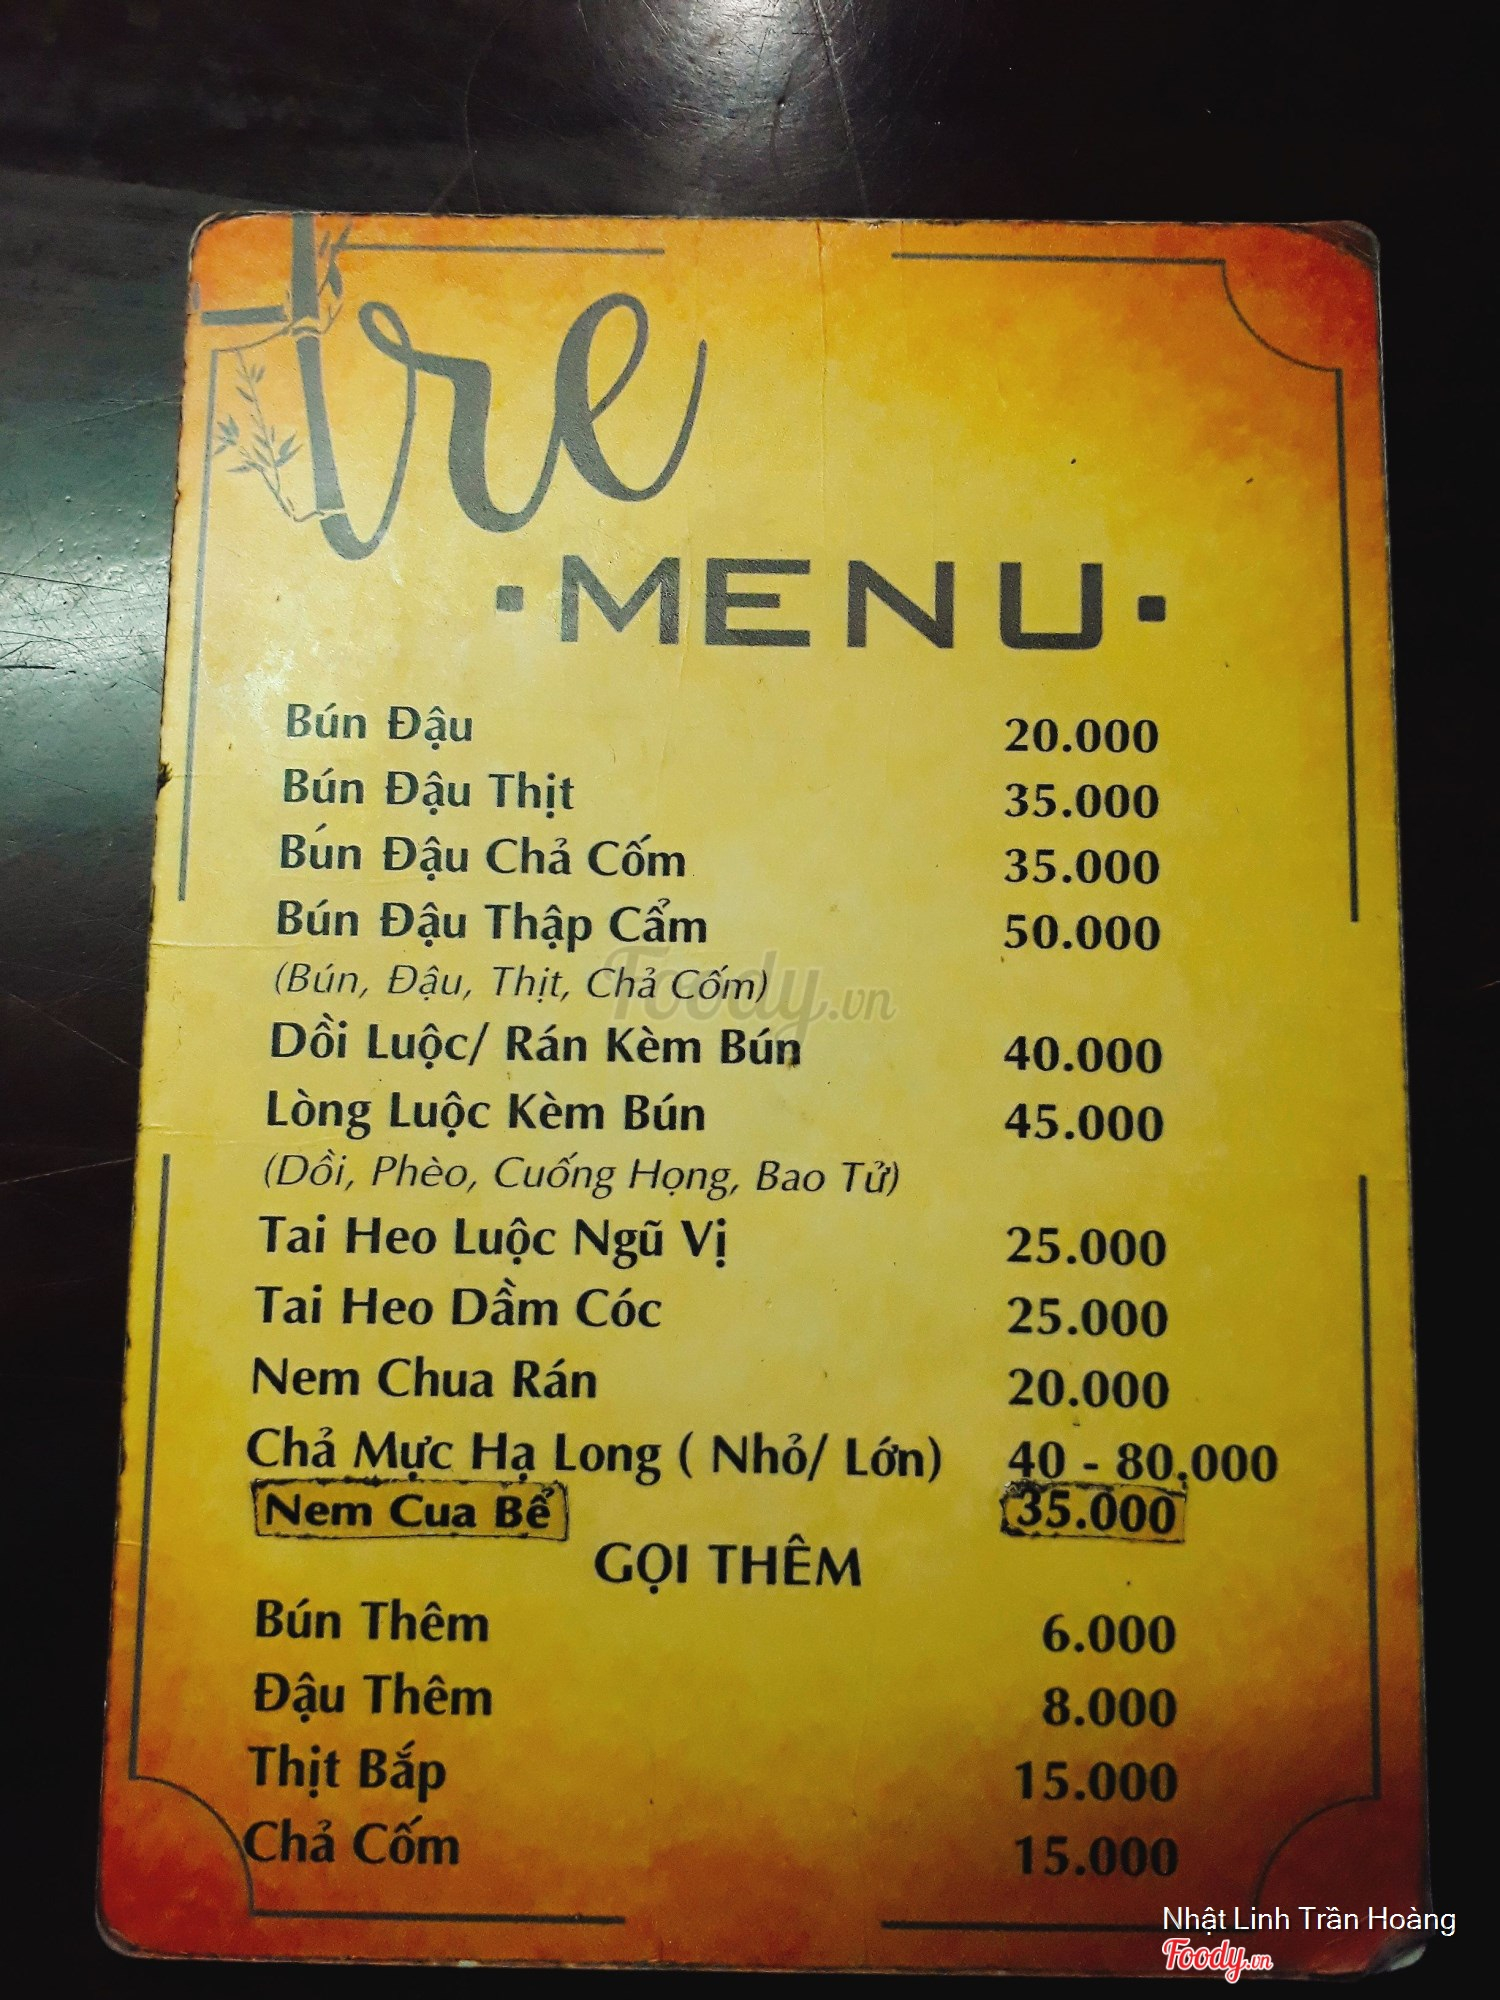 tre
·MENU·
Bún Đậu 20.000
Bún Đậu Thịt 35.000
Bún Đậu Chả Cốm 35.000
Bún Đậu Thập Cẩm 50.000
(Bún, Đậu, Thịt, Chả Cốm)
Foody.vn
Dồi Luộc/ Rán Kèm Bún 40.000
Lòng Luộc Kèm Bún 45.000
(Dồi, Phèo, Cuống Họng, Bao Tử)
Tai Heo Luộc Ngũ Vị 25.000
Tai Heo Dầm Cóc 25.000
Nem Chua Rán 20.000
Chả Mực Hạ Long ( Nhỏ/ Lớn) 40 - 80.000
Nem Cua Bể 35.000
GỌI THÊM
Bún Thêm 6.000
Đậu Thêm 8.000
Thịt Bắp 15.000
Chả Cốm 15.000
Nhật Linh Trần Hoàng
Foody.vn